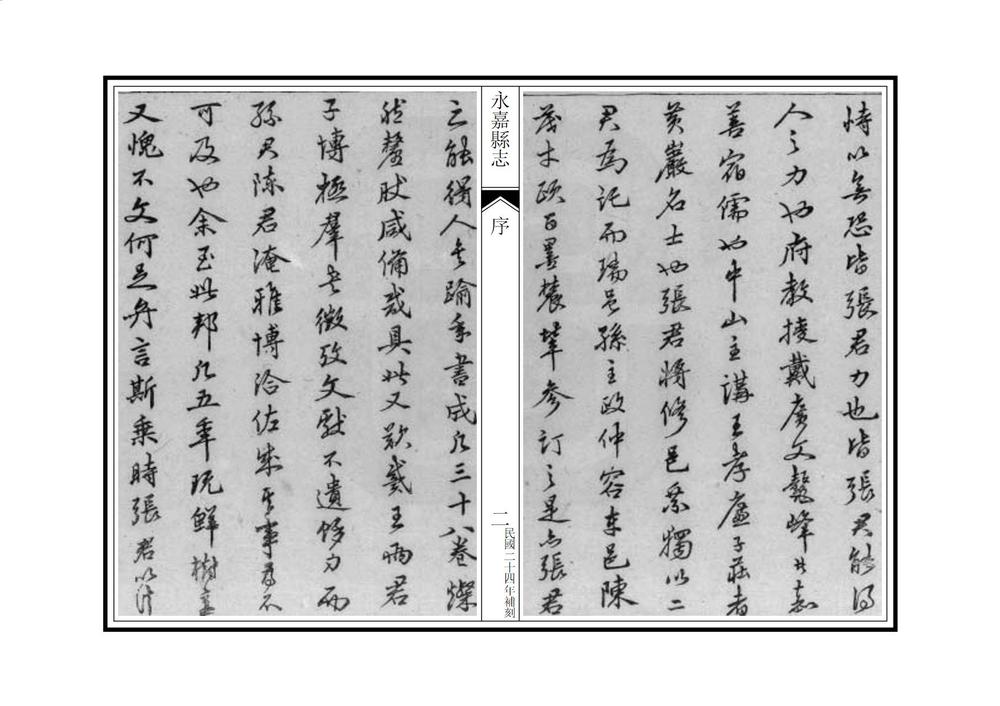 恃以無恐皆張君力也皆張君能得
人之力也府教授戴廣文鼇峰廿嘉
善宿儒也中山主講王孝廉子莊者
黃巖名士也張君將修邑乘獨以二
君為託而瑞邑孫主政仲容本邑陳
茂才歐百墨農輩參訂之是亦張君
永嘉縣志
序
二
民國二十四年補刻
之能得人矣踰年書成凡三十八卷燦
然釐然咸備哉具此又歎戴王兩君
子博極羣書徵考文獻不遺餘力而
孫君陳君淹雅博洽佐成其事為不
可及也余至此邦凡五年既鮮樹立
又愧不文何足弁言斯乘時張君以